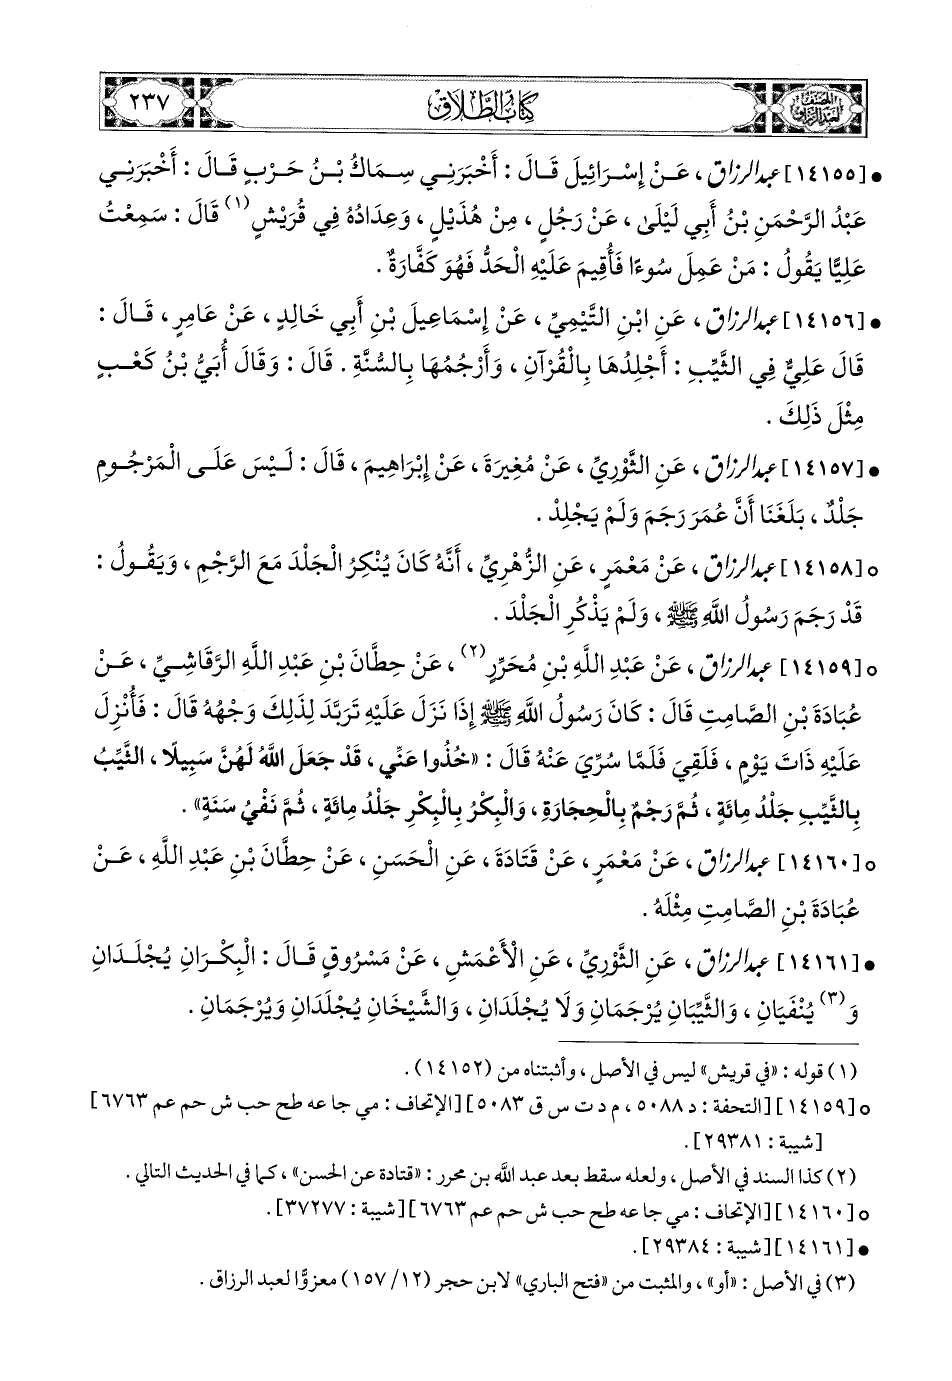 المصنف لعبد الرزاق
كتاب الطلاق
٢٣٧
• [١٤١٥٥] عبد الرزاق، عَنْ إِسْرَائِيلَ قَالَ: أَخْبَرَنِي سِمَاكُ بْنُ حَرْبٍ قَالَ: أَخْبَرَنِي
عَبْدُ الرَّحْمَنِ بْنُ أَبِي لَيْلَىٰ، عَنْ رَجُلٍ، مِنْ هُذَيْلٍ، وَعِدَادُهُ فِي قُرَيْشٍ(١) قَالَ: سَمِعْتُ
عَلِيًّا يَقُولُ: مَنْ عَمِلَ سُوءًا فَأُقِيمَ عَلَيْهِ الْحَدُّ فَهُوَ كَفَّارَةٌ.
• [١٤١٥٦] عبد الرزاق، عَنِ ابْنِ التَّيْمِيِّ، عَنْ إِسْمَاعِيلَ بْنِ أَبِي خَالِدٍ، عَنْ عَامِرٍ، قَالَ:
قَالَ عَلِيٌّ فِي الثَّيِّبِ: أَجْلِدُهَا بِالْقُرْآنِ، وَأَرْجُمُهَا بِالسُّنَّةِ. قَالَ: وَقَالَ أُبَيُّ بْنُ كَعْبٍ
مِثْلَ ذَلِكَ.
• [١٤١٥٧] عبد الرزاق، عَنِ الثَّوْرِيِّ، عَنْ مُغِيرَةَ، عَنْ إِبْرَاهِيمَ، قَالَ: لَيْسَ عَلَى الْمَرْجُومِ
جَلْدٌ، بَلَغَنَا أَنَّ عُمَرَ رَجَمَ وَلَمْ يَجْلِدْ.
○ [١٤١٥٨] عبد الرزاق، عَنْ مَعْمَرٍ، عَنِ الزُّهْرِيِّ، أَنَّهُ كَانَ يُنْكِرُ الْجَلْدَ مَعَ الرَّجْمِ، وَيَقُولُ:
قَدْ رَجَمَ رَسُولُ اللَّهِ ﷺ، وَلَمْ يَذْكُرِ الْجَلْدَ.
○ [١٤١٥٩] عبد الرزاق، عَنْ عَبْدِ اللَّهِ بْنِ مُحَرَّرٍ(٢)، عَنْ حِطَّانَ بْنِ عَبْدِ اللَّهِ الرَّقَاشِيِّ، عَنْ
عُبَادَةَ بْنِ الصَّامِتِ قَالَ: كَانَ رَسُولُ اللَّهِ ﷺ إِذَا نَزَلَ عَلَيْهِ تَرَبَّدَ لِذَلِكَ وَجْهُهُ قَالَ: فَأُنْزِلَ
عَلَيْهِ ذَاتَ يَوْمٍ، فَلَقِيَ فَلَمَّا سُرِّيَ عَنْهُ قَالَ: «خُذُوا عَنِّي، قَدْ جَعَلَ اللَّهُ لَهُنَّ سَبِيلًا، الثَّيِّبُ
بِالثَّيِّبِ جَلْدُ مِائَةٍ، ثُمَّ رَجْمٌ بِالْحِجَارَةِ، وَالْبِكْرُ بِالْبِكْرِ جَلْدُ مِائَةٍ، ثُمَّ نَفْيُ سَنَةٍ».
○ [١٤١٦٠] عبد الرزاق، عَنْ مَعْمَرٍ، عَنْ قَتَادَةَ، عَنِ الْحَسَنِ، عَنْ حِطَّانَ بْنِ عَبْدِ اللَّهِ، عَنْ
عُبَادَةَ بْنِ الصَّامِتِ مِثْلَهُ.
• [١٤١٦١] عبد الرزاق، عَنِ الثَّوْرِيِّ، عَنِ الْأَعْمَشِ، عَنْ مَسْرُوقٍ قَالَ: الْبِكْرَانِ يُجْلَدَانِ
وَ(٣) يُنْفَيَانِ، وَالثَّيِّبَانِ يُرْجَمَانِ وَلَا يُجْلَدَانِ، وَالشَّيْخَانِ يُجْلَدَانِ وَيُرْجَمَانِ.
(١) قوله: «في قريش» ليس في الأصل، وأثبتناه من (١٤١٥٢).
○ [١٤١٥٩] [التحفة: د ٥٠٨٨، م د ت س ق ٥٠٨٣] [الإتحاف: مي جا عه طح حب ش حم عم ٦٧٦٣]
[شيبة: ٢٩٣٨١].
(٢) كذا السند في الأصل، ولعله سقط بعد عبد الله بن محرر: «قتادة عن الحسن»، كما في الحديث التالي.
○ [١٤١٦٠] [الإتحاف: مي جا عه طح حب ش حم عم ٦٧٦٣] [شيبة: ٣٧٢٧٧].
• [١٤١٦١] [شيبة: ٢٩٣٨٤].
(٣) في الأصل: «أو»، والمثبت من «فتح الباري» لابن حجر (١٢/ ١٥٧) معزوًّا لعبد الرزاق.